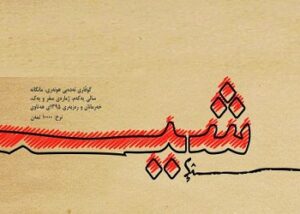 گۆڤاری ئەدەبی هونەری، مانگانە
ساڵی یەکەم، ژمارەی سفر و یەک،
خەرمانان و رەزبەری ١٣٩٥ی هەتاوی
نرخ: ١٠٠٠٠ تمەن
شیـ